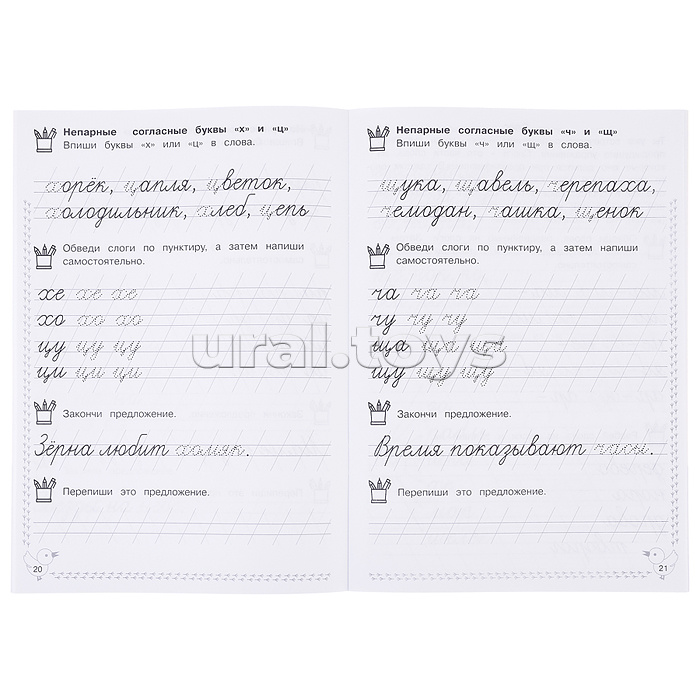 Непарные согласные буквы «х» и «ц»
Впиши буквы «х» или «ц» в слова.
хорёк, цапля, цветок,
холодильник, хлеб, цепь
Обведи слоги по пунктиру, а затем напиши
самостоятельно.
хе хе хе
хо хо хо
цу цу цу
ци ци ци
Закончи предложение.
Зёрна любит хомяк.
Перепиши это предложение.
20
Непарные согласные буквы «ч» и «щ»
Впиши буквы «ч» или «щ» в слова.
щука, щавель, черепаха,
чемодан, чашка, щенок
Обведи слоги по пунктиру, а затем напиши
самостоятельно.
ча ча ча
чу чу чу
ща ща ща
щу щу щу
Закончи предложение.
Время показывают часы.
Перепиши это предложение.
21
ural.toys